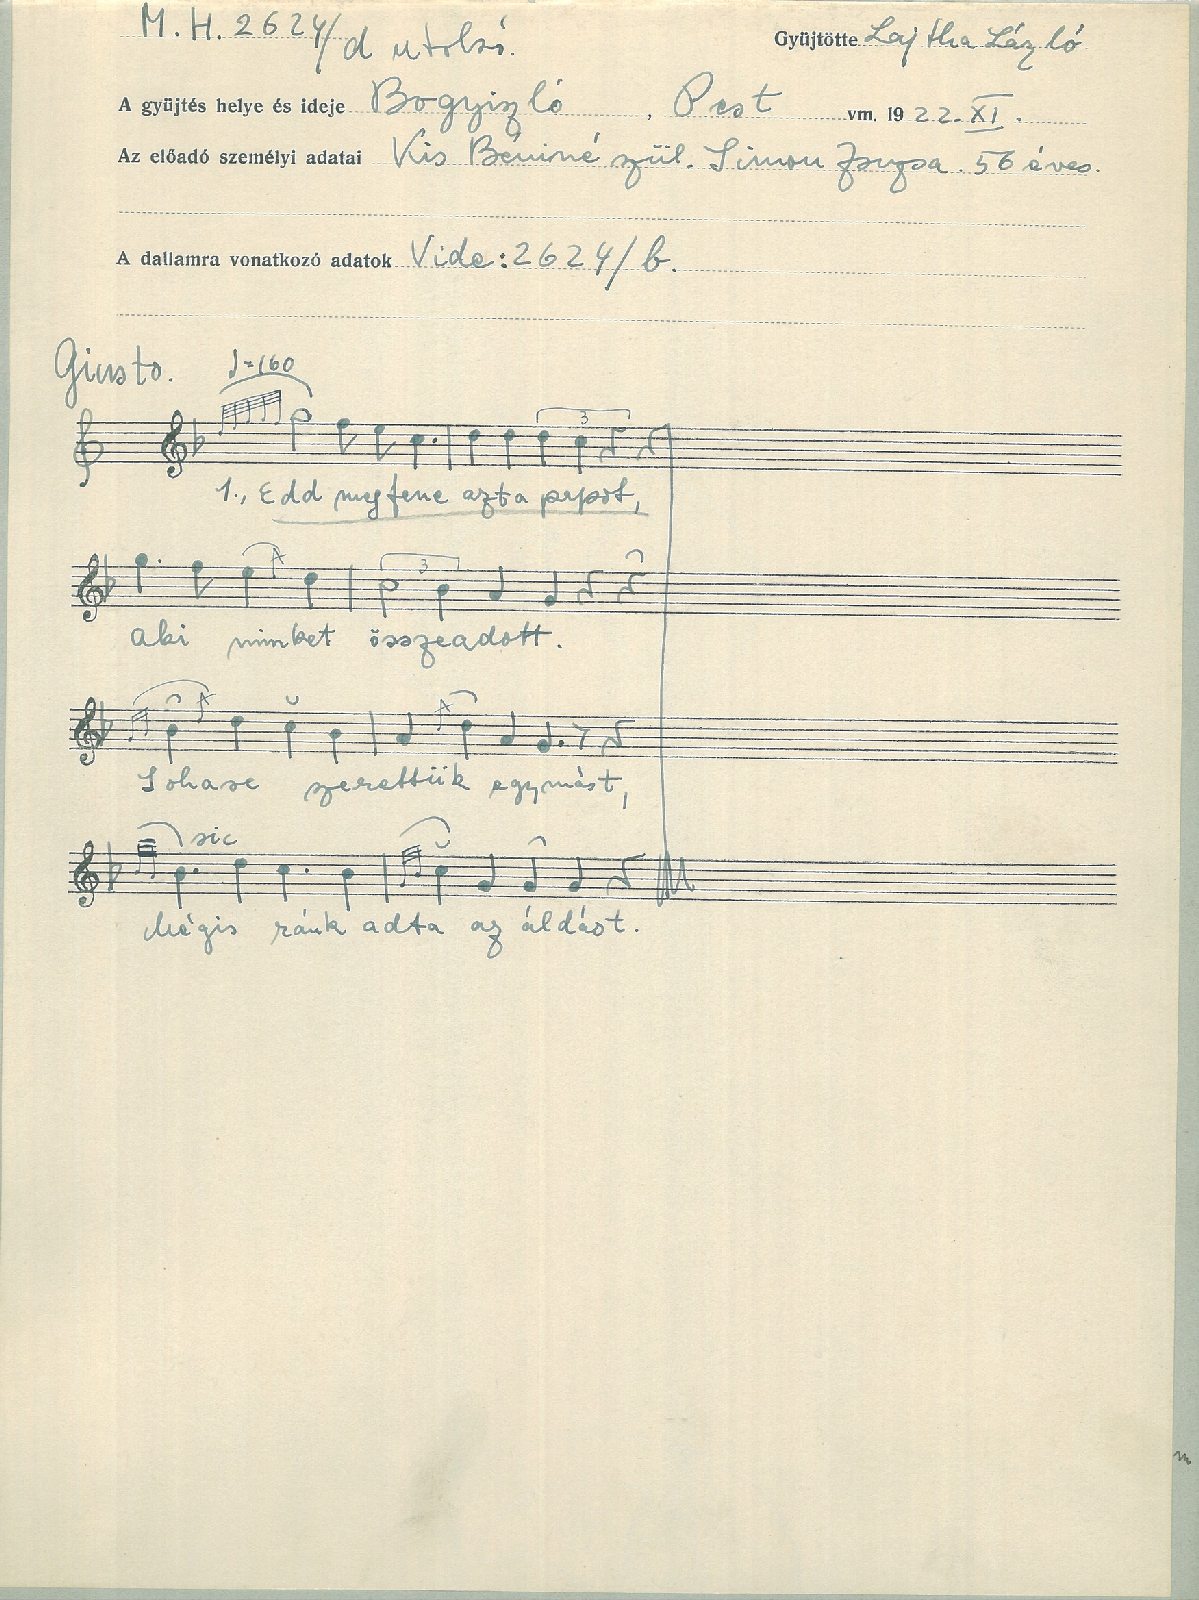 M. H. 2624/d utolsó.
Gyüjtötte Lajtha László
A gyüjtés helye és ideje Bogyiszló, Pest vm. 1922. XI.
Az előadó személyi adatai Kis Béniné szül. Simon Zsuzsa. 56 éves.
A dallamra vonatkozó adatok Vide: 2624/b.
Giusto. ♩=160
3
1., Edd meg fene azt a papot,
3
aki minket összeadott.
Sohase szerettük egymást,
sic
Mégis ránk adta az áldást.